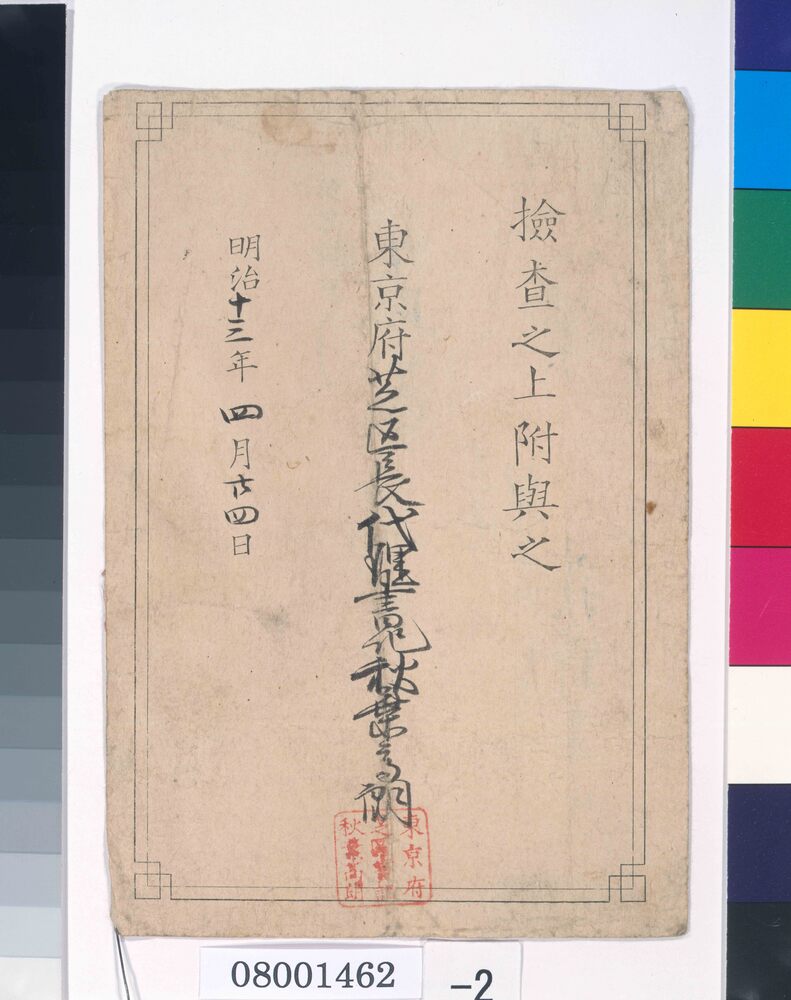 撿查之上附與之
東京府芝区長代理書記秋葉高朗
明治十三年四月廿四日
東京府
秋葉高朗
08001462
-2